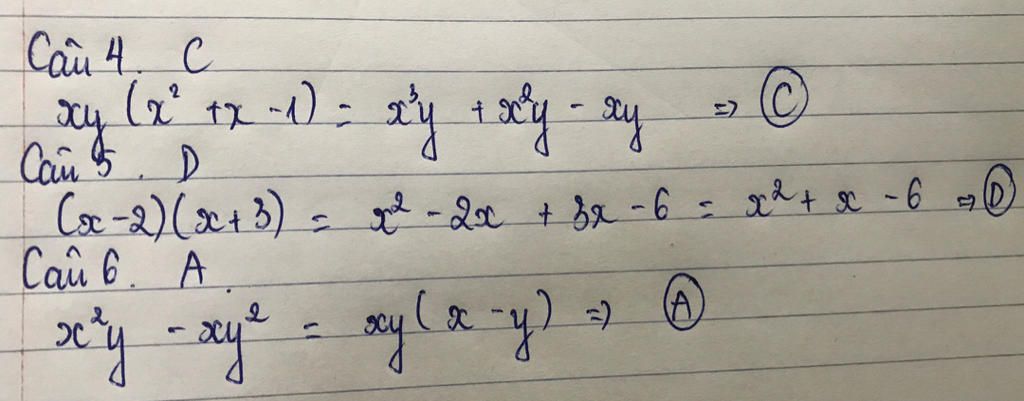 Câu 4. C
xy (x² + x - 1) = x³y + x²y - xy => C
Câu 5. D
(x - 2)(x + 3) = x² - 2x + 3x - 6 = x² + x - 6 => D
Câu 6. A.
x²y - xy² = xy(x - y) => A